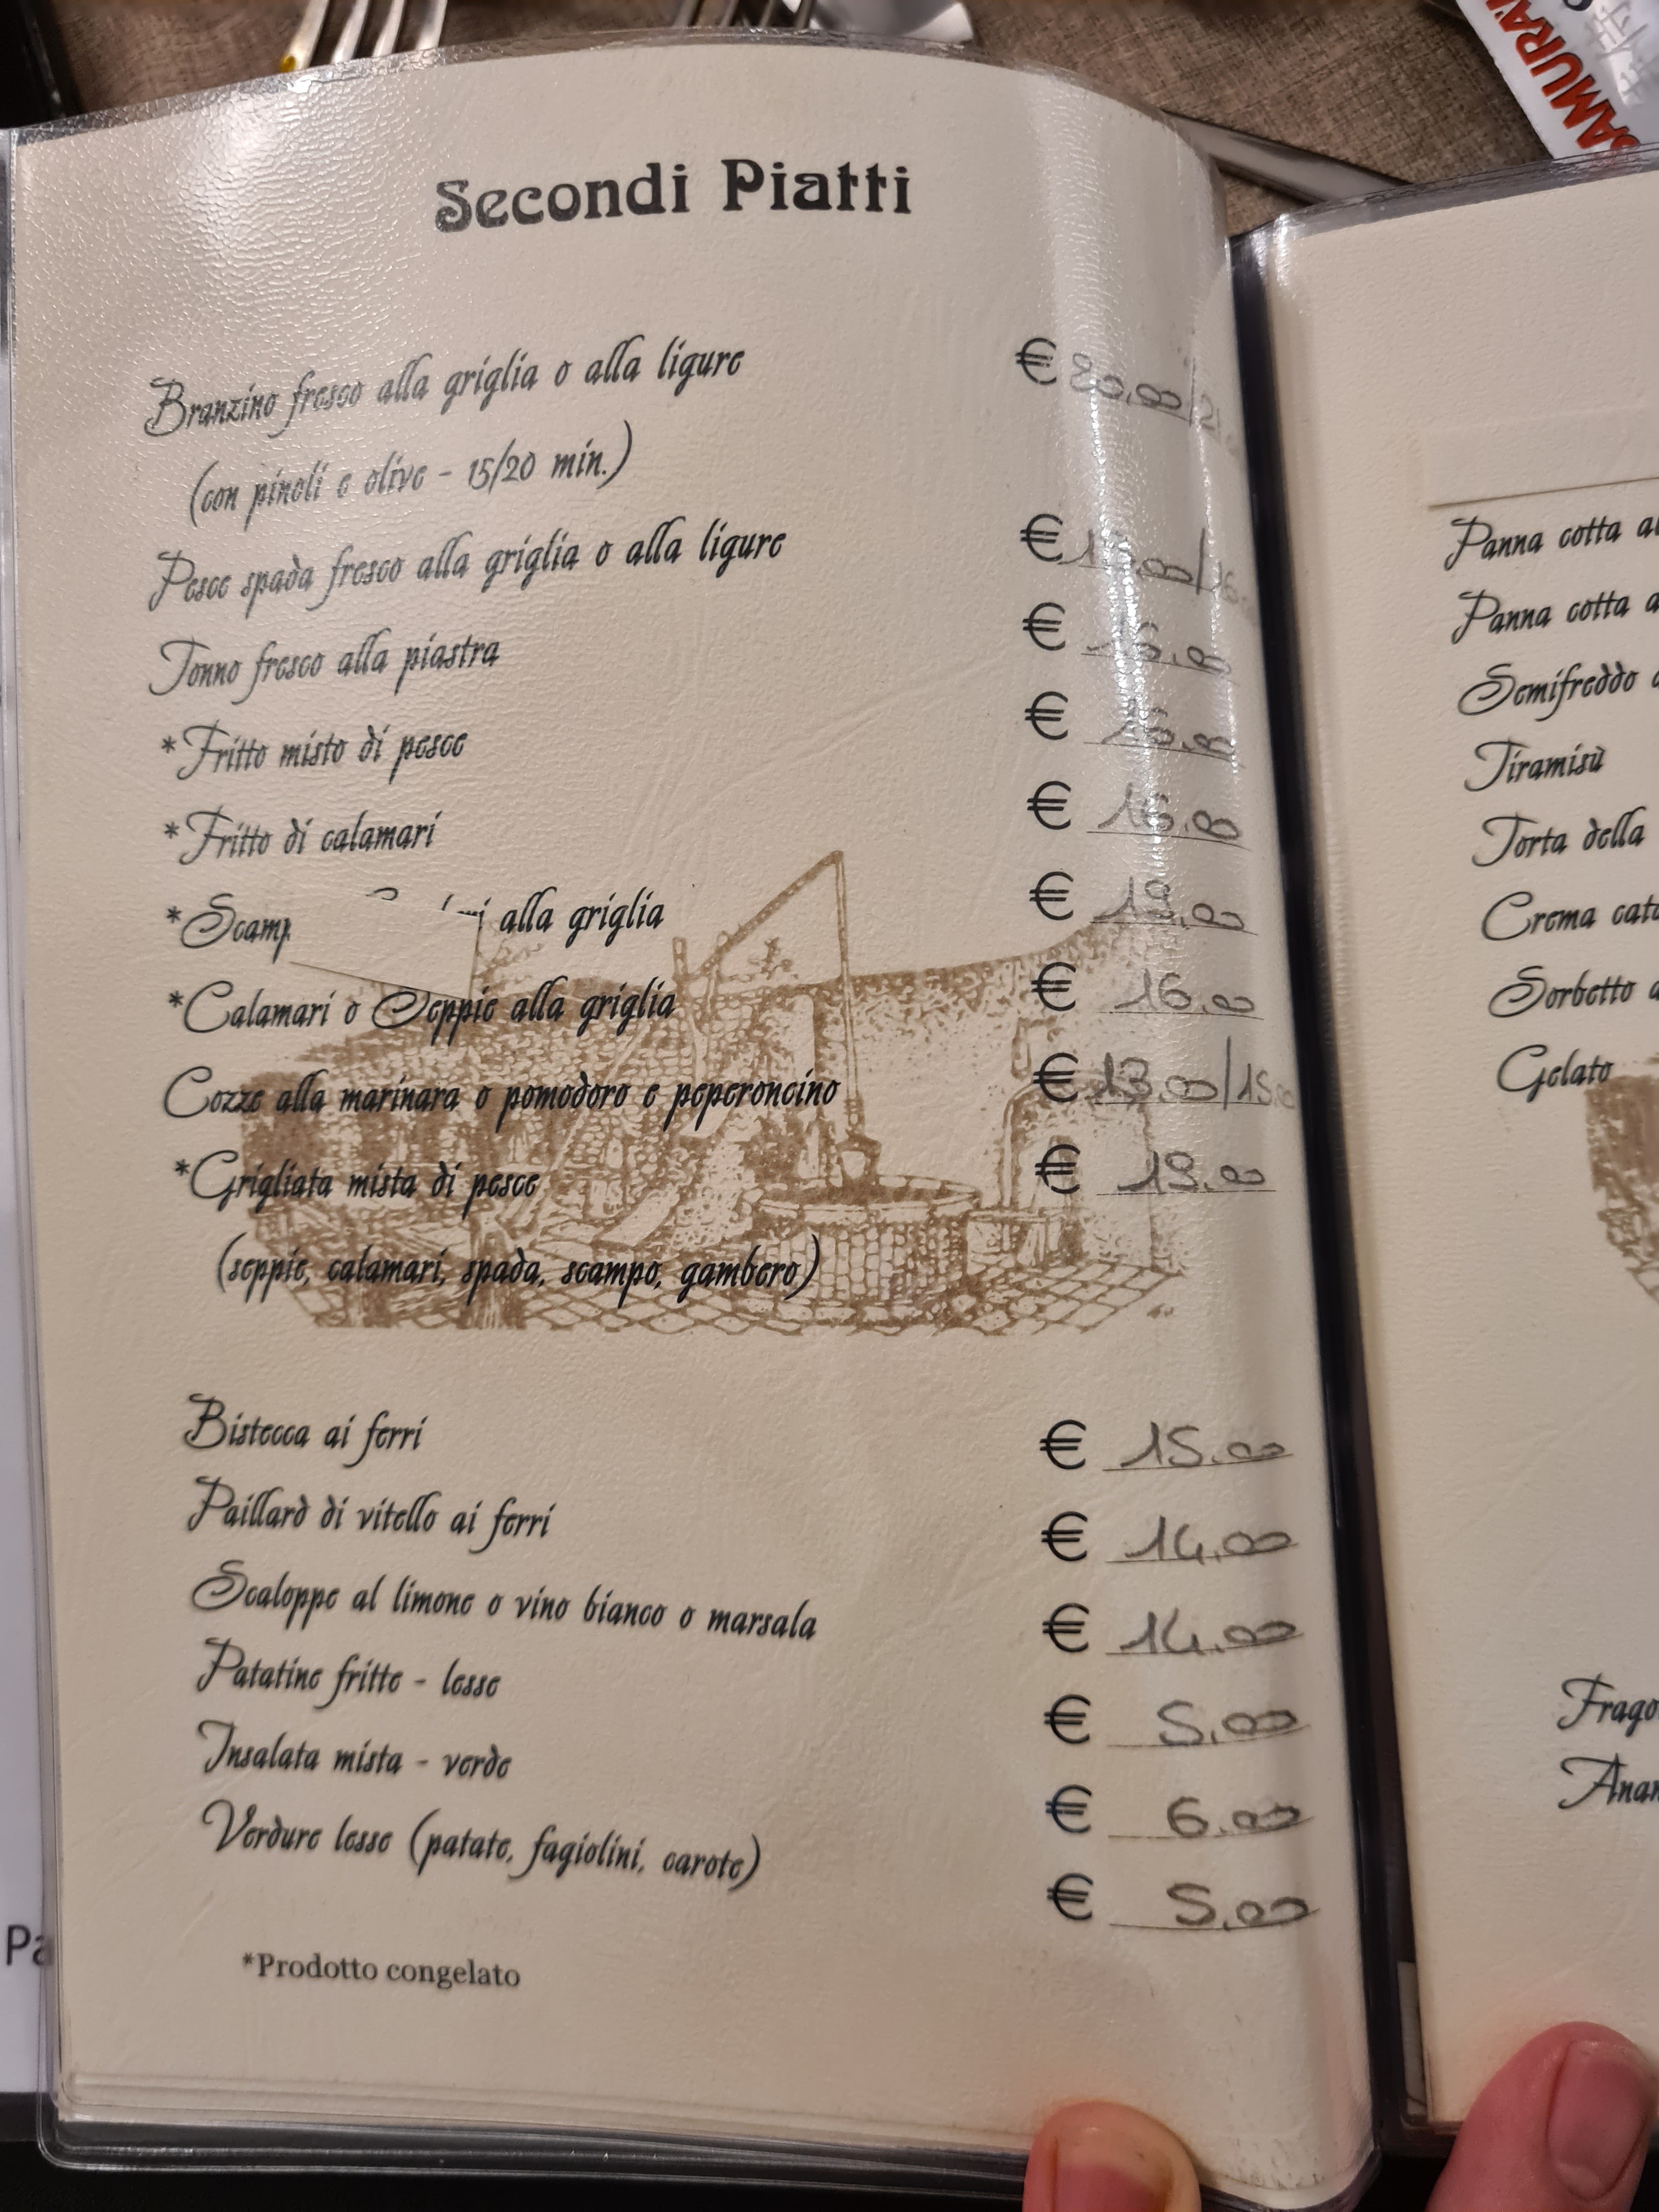 SAMURAI
Secondi Piatti
Branzino fresco alla griglia o alla ligure €
(con pinoli e olive - 15/20 min.)
Pesce spada fresco alla griglia o alla ligure €
Tonno fresco alla piastra € 16,00
*Fritto misto di pesce € 16,00
*Fritto di calamari € 16,00
alla griglia €
*Calamari o Seppie alla griglia € 16,00
Cozze alla marinara o pomodoro e peperoncino € 13,00/15,00
*Grigliata mista di pesce €
(seppie, calamari, spada, scampo, gambero)
Bistecca ai ferri € 15,00
Paillard di vitello ai ferri € 14,00
Scaloppe al limone o vino bianco o marsala € 14,00
Patatine fritte - lesse € 5,00
Insalata mista - verde € 6,00
Verdure lesse (patate, fagiolini, carote) € 5,00
*Prodotto congelato
Panna cotta
Panna cotta
Semifreddo
Tiramisù
Torta della
Crema
Sorbetto
Gelato